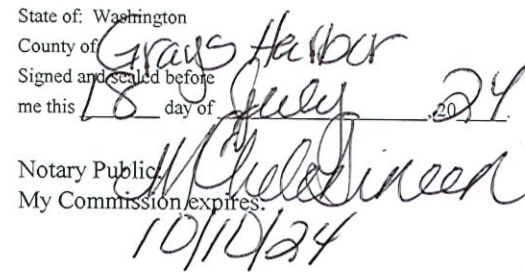 State of: Washington
County of Grays Harbor
Signed and sealed before
me this 18 day of July, 20 24.
Notary Public:
My Commission expires:
10/10/24